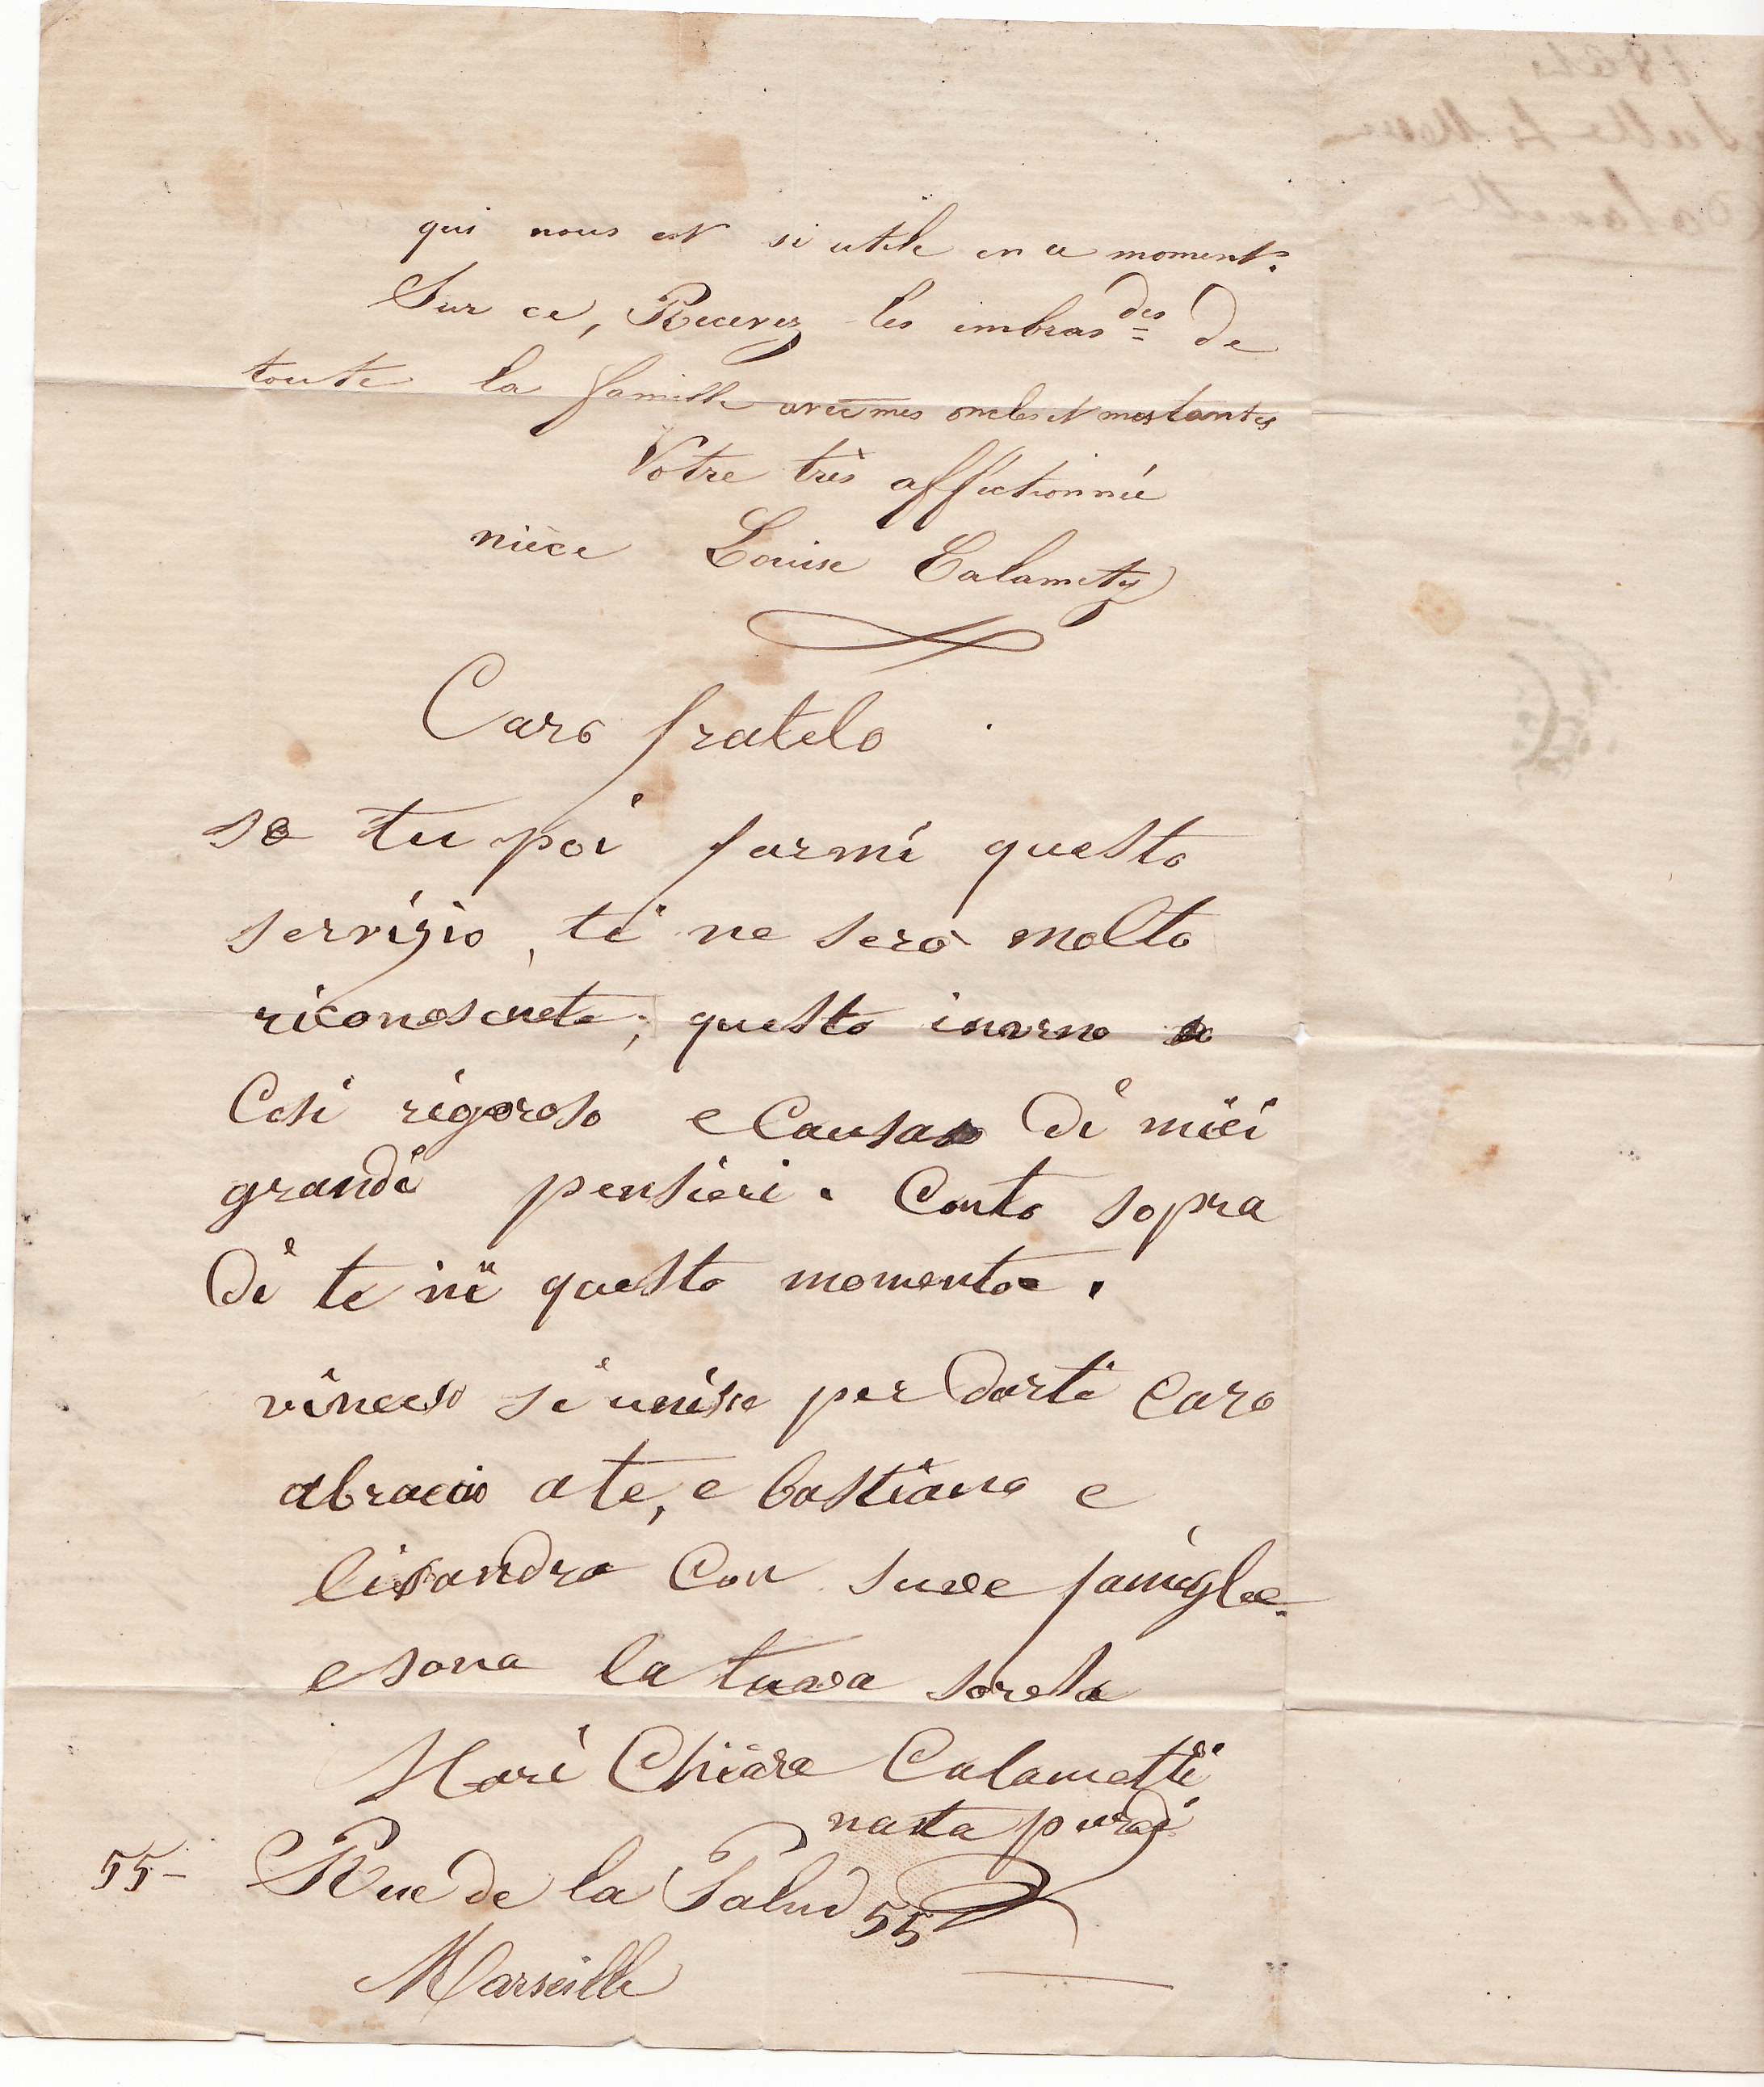 qui nous est si utile en ce moment.
Sur ce, Recevez les embras des de
toute la famille avec mes oncles et mes tantes
Votre très affectionnée
nièce Louise Calametz
Caro fratelo
se tu poi farmi questo
servizio, ti ne sero molto
riconoscente, questo inverno
Cosi rigoroso e Causa di miei
grandi pensieri. Conto sopra
di te in questo momento.
si unisce per darti caro
abracio a te, e bastiano e
lisandro Con sue famiglie
e sono la tua sorela
Mari Chiara Calametti
nata
55 - Rue de la Palud 55
Marseille
1864